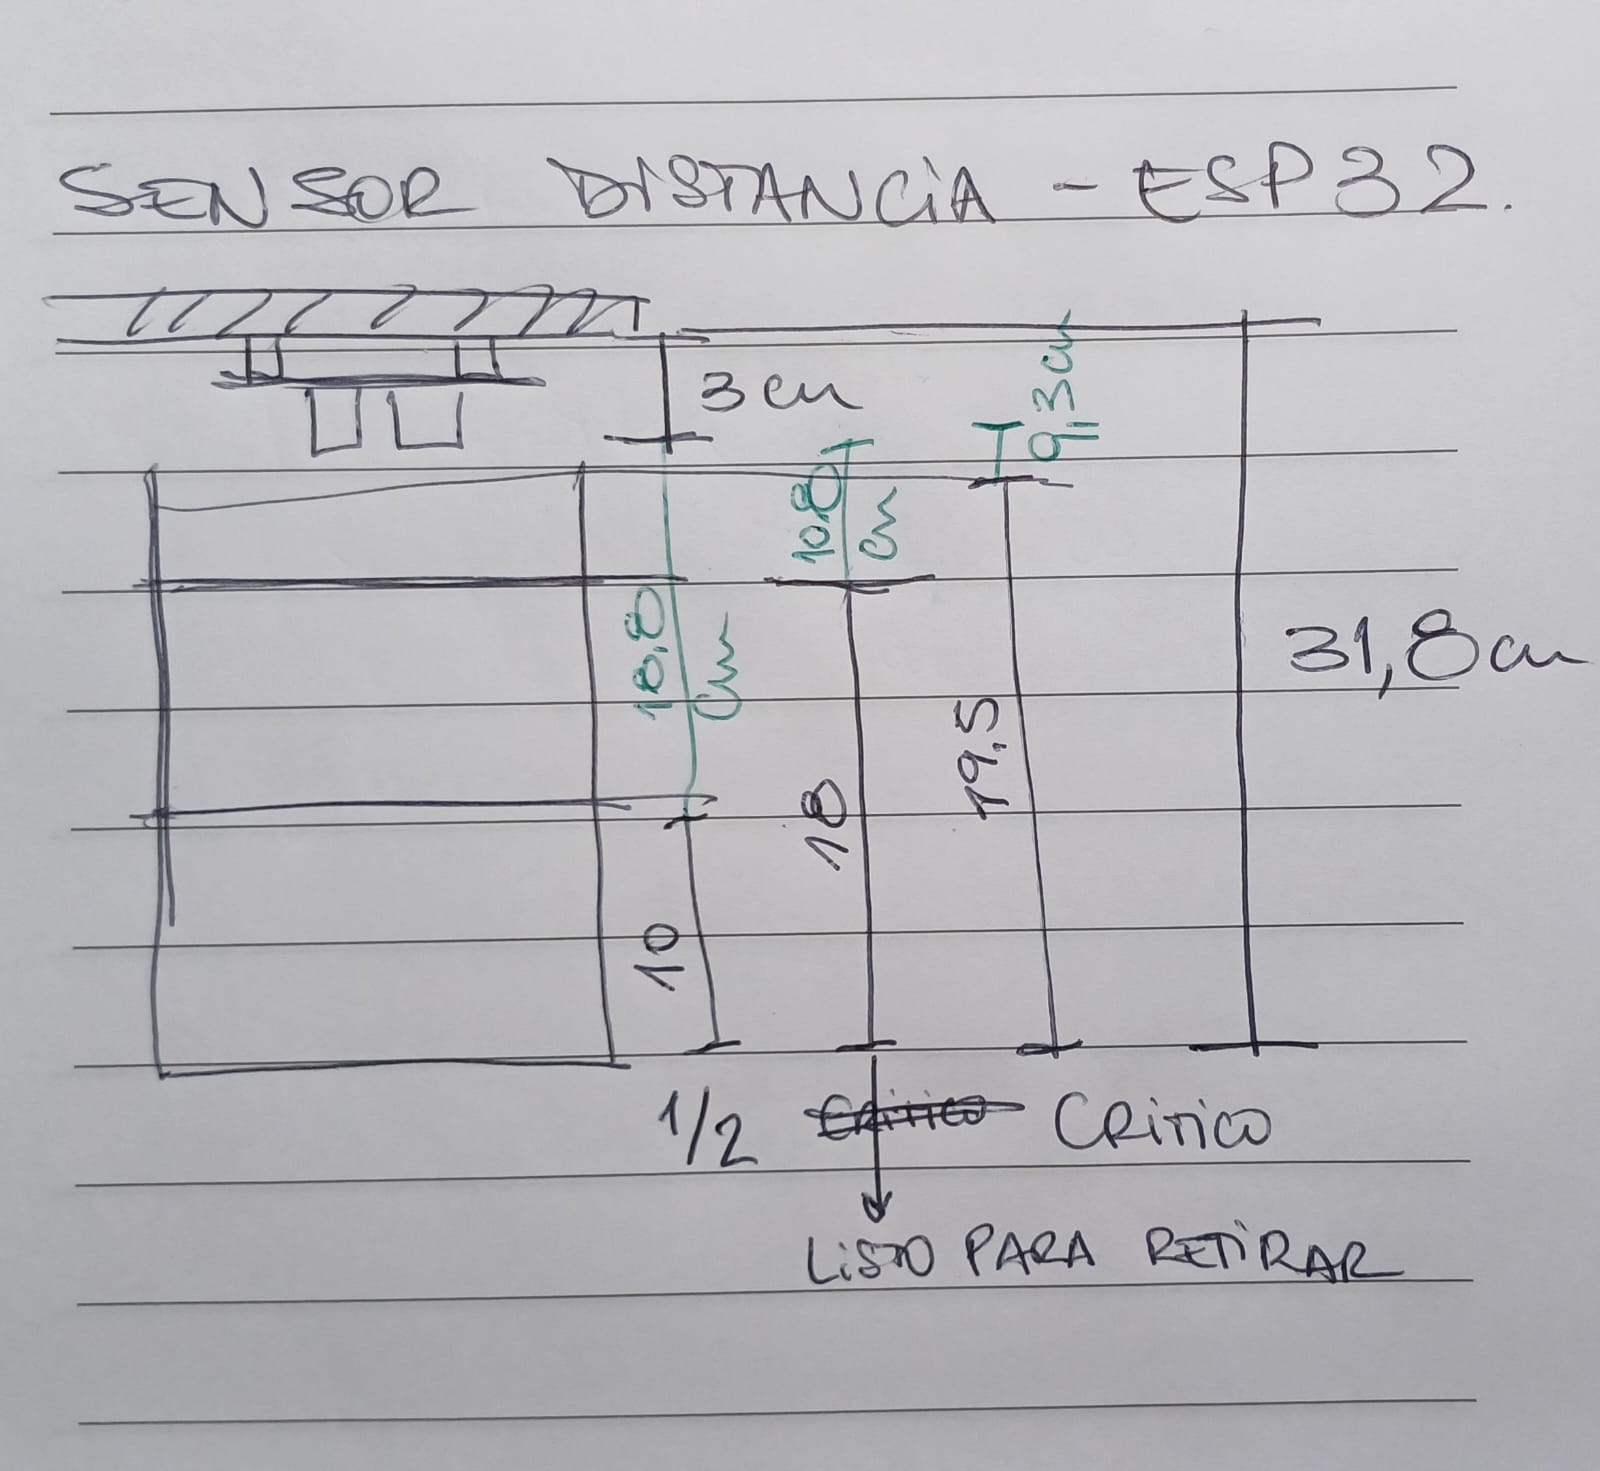 SENSOR DISTANCIA - ESP32.
3 cm
9,3cm
10,8 cm
18,8 cm
31,8 cm
19,5
18
10
1/2 Critico Critico
LISTO PARA RETIRAR